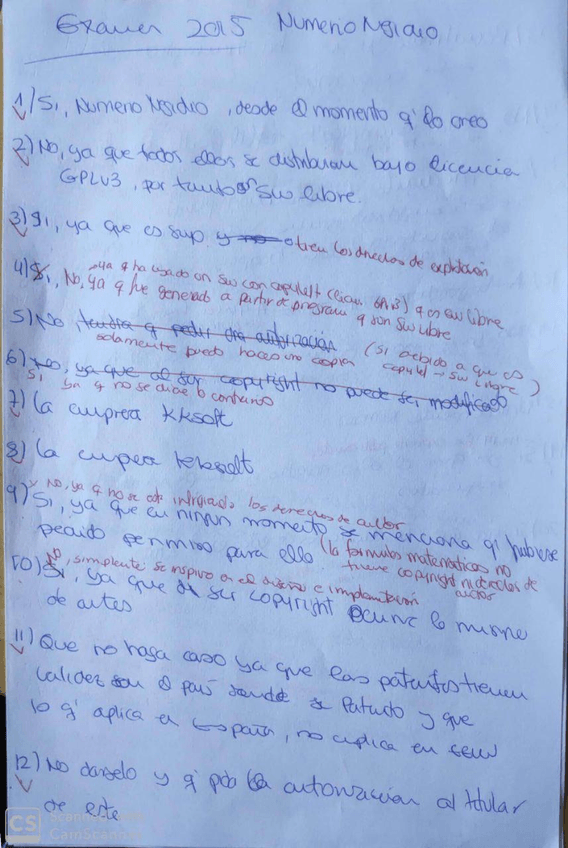 Examen 2015 Numerio Negidio
1) Si, Numerio Negidio, desde el momento q' lo creo
2) No, ya que todos ellos se distribuian bajo licencia
GPLV3, por tanto SW libre.
3) Si, ya que es suyo y no tien los derechos de explotación
4) Si, No, ya q fue generado a partir de program q son SW libre
ya q ha usado un SW con copyleft (licen. GPLv3) q es SW libre
5) No tendra q pedir otra autorización (Si debido a que es
solamente puedo hacer una copia copyleft → SW libre)
6) No, ya que al ser copyright no puede ser modificado
Si ya q no se dice lo contrario
7) La empresa KKsoft
8) La empresa KKsoft
No, ya q no se ha infringido los derechos de autor
9) Si, ya que en ningun momento se menciona q' hubiese
pedido permiso para ello (la formulas matemáticas no
tiene copyright ni derechos de autor
No, simplemente se inspiro en el diseño e implementación
10) Si, ya que al ser copyright ocurre lo mismo
de antes
11) Que no haga caso ya que las patentes tienen
validez en el pais donde se Patento y que
lo q' aplica en España, no aplica en
12) No darselo y q' pida la autorizacion al titular
de este
CS Scanned with
CamScanner